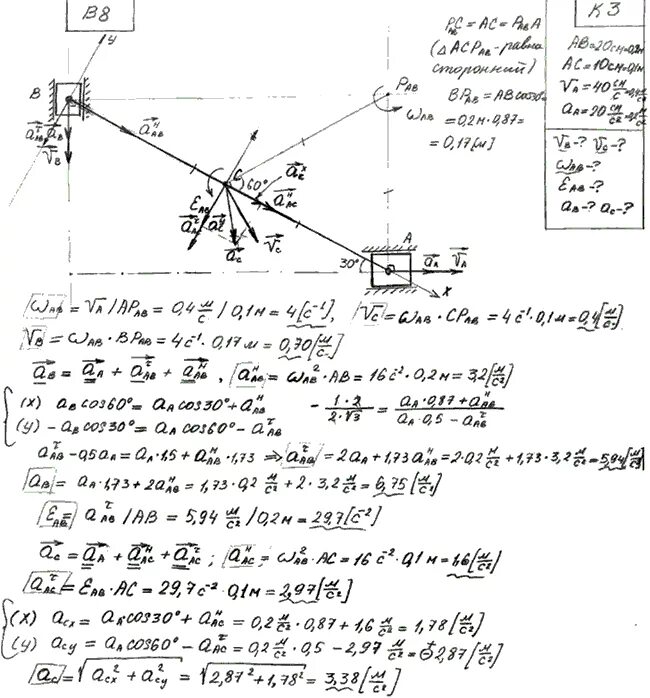 B8
K3
P_AB C = AC = P_AB A
(△ACP_AB - равносторонний)
BP_AB = AB cos30° =
= 0,2м · 0,87 =
= 0,17[м]
AB = 20см = 0,2м
AC = 10см = 0,1м
V_A = 40 см/с = 0,4 м/с
a_A = 20 см/с² = 0,2 м/с²
V_B - ? V_C - ?
ω_AB - ?
ε_AB - ?
a_B - ? a_C - ?
y
B
a_B
V_B
a^н_AB
P_AB
ω_AB
C
60°
ε_AB
a^н_AC
a_C
V_C
A
30°
a_A
V_A
x
ω_AB = V_A / AP_AB = 0,4 м/с / 0,1м = 4[с⁻¹], V_C = ω_AB · CP_AB = 4с⁻¹ · 0,1м = 0,4[м/с]
V_B = ω_AB · BP_AB = 4с⁻¹ · 0,17м = 0,70[м/с]
a_B = a_A + a^τ_AB + a^н_AB, a^н_AB = ω_AB² · AB = 16с⁻² · 0,2м = 3,2[м/с²]
(x) a_B cos60° = a_A cos30° + a^н_AB - 1·2/2·√3 = a_A · 0,87 + a^н_AB / a_A · 0,5 - a^τ_AB
(y) - a_B cos30° = a_A cos60° - a^τ_AB
a^τ_AB - 0,5a_A = a_A · 1,5 + a^н_AB · 1,73 ⇒ a^τ_AB = 2a_A + 1,73a^н_AB = 2·0,2 м/с² + 1,73 · 3,2 м/с² = 5,94[м/с²]
a_B = a_A · 1,73 + 2a^н_AB = 1,73 · 0,2 м/с² + 2 · 3,2 м/с² = 6,75[м/с²]
ε_AB = a^τ_AB / AB = 5,94 м/с² / 0,2м = 29,7[с⁻²]
a_C = a_A + a^н_AC + a^τ_AC; a^н_AC = ω_AB² · AC = 16 с⁻² · 0,1м = 1,6[м/с²]
a^τ_AC = ε_AB · AC = 29,7с⁻² · 0,1м = 2,97[м/с²]
(x) a_Cx = a_A cos30° + a^н_AC = 0,2 м/с² · 0,87 + 1,6 м/с² = 1,78[м/с²]
(y) a_Cy = a_A cos60° - a^τ_AC = 0,2 м/с² · 0,5 - 2,97 м/с² = 2,87[м/с²]
a_C = √(a_Cx² + a_Cy²) = √(2,87² + 1,78²) = 3,38[м/с²]